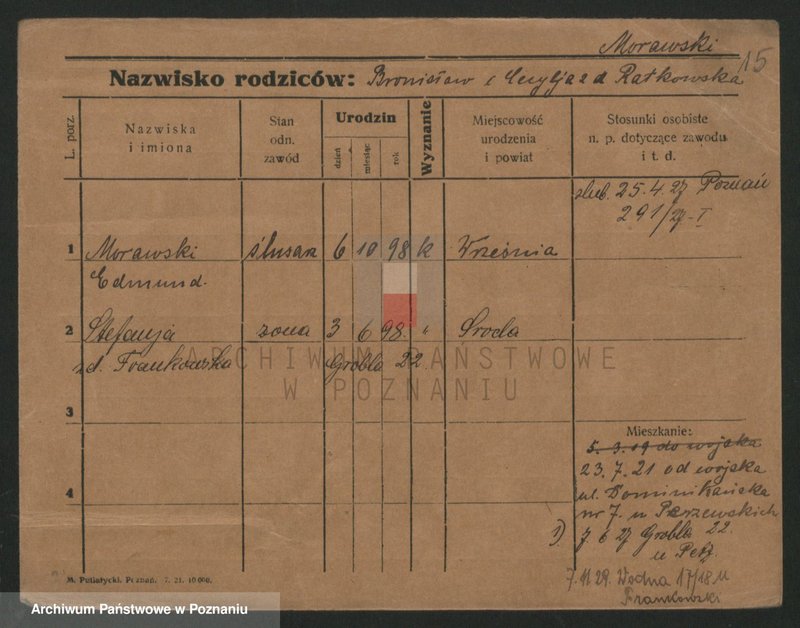 Morawski
15
Nazwisko rodziców: Bronisław i Cecylja z d Ratkowska
L. porz.
Nazwiska
i imiona
Stan
odn.
zawód
Urodzin
dzień
miesiąc
rok
Wyznanie
Miejscowość
urodzenia
i powiat
Stosunki osobiste
n. p. dotyczące zawodu
i t. d.
ślub. 25.4.27 Poznań
291/27-I
1 Morawski ślusarz 6 10 98 k Września
Edmund.
2 Stefanja żona 3 6 98. " Środa
zd. Frankowska Grobla 22
3
4
Mieszkanie:
5. 3. 19 do wojska
23. 7. 21 od wojska
ul. Dominikańska
nr 7. u
1) 7 6 27 Grobla 22.
u
7. 11 29. Wodna 17/18 u
Frankowski
M. Putiatycki. Poznań. 7. 21. 10 000.
ARCHIWUM PAŃSTWOWE
W POZNANIU
Archiwum Państwowe w Poznaniu